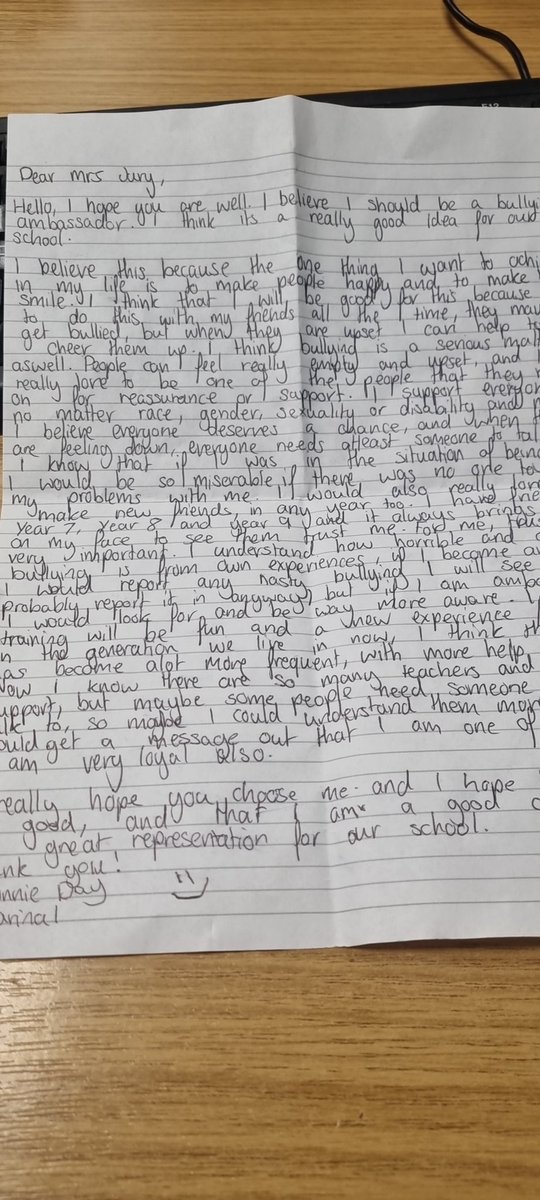 Dear Mrs Jury,
Hello, I hope you are well. I believe I should be a bullyi
ambassador. I think its a really good idea for our
school.
I believe this because the one thing I want to achi
in my life is to make people happy and to make
smile. I think that I will be good for this because
to do this with my friends all the time, they may
get bullied, but when they are upset I can help to
cheer them up. I think bullying is a serious matt
aswell. People can feel really empty and upset, and I
really love to be one of the people that they r
on for reassurance or support. I support everyon
no matter race, gender, sexuality or disability and
I believe everyone deserves a chance, and when
are feeling down, everyone needs atleast someone to tal
I know that if I was in the situation of being
I would be so miserable if there was no one to
my problems with me. I would also really love
make new friends, in any year too. I have frie
Year 7, Year 8 and year 9 and it always brings
on my face to see them trust me. for me, trus
very important. I understand how horrible and
bullying is from own experiences, if I became a
I would report any nasty bullying I will see
probably report it in anyway, but if I am amba
I would look for and be way more aware.
training will be fun and a new experience
n the generation we live in now, I think th
as become alot more frequent, with more help
Now I know there are so many teachers and
upport, but maybe some people need someone
lk to, so maybe I could understand them mor
ould get a message out that I am one of
am very loyal also.
really hope you choose me. and I hope
good, and that I am a good
great representation for our school.
nk you!
nnie Day